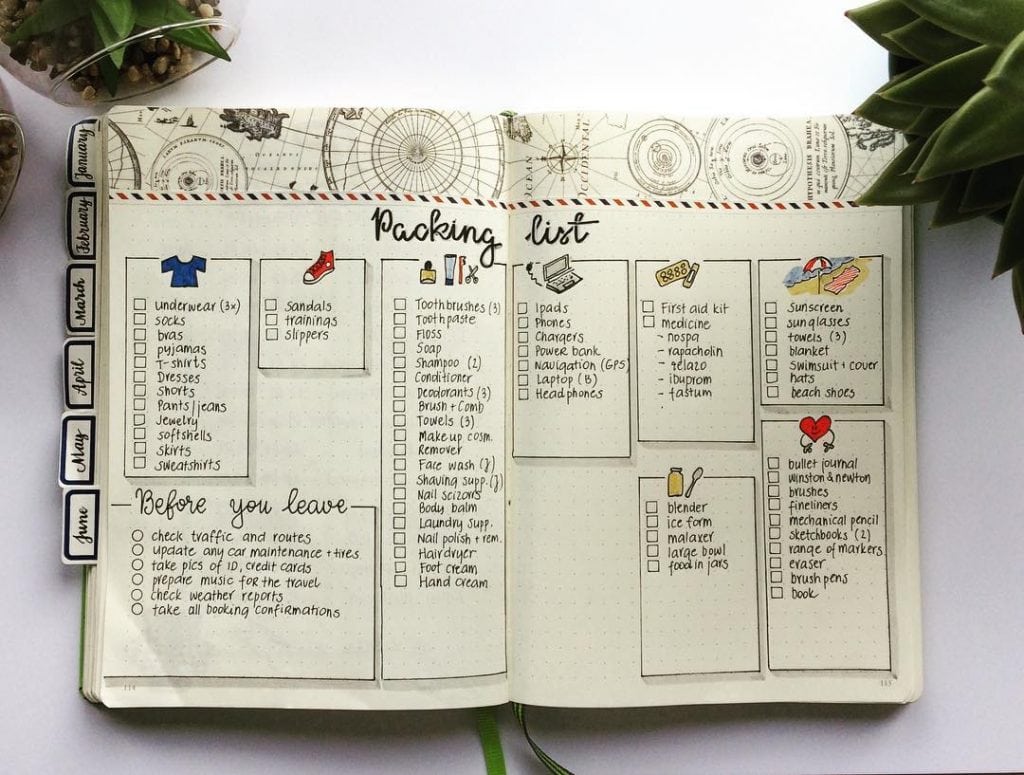 January
February
March
April
May
June
OCCIDENTAL
Packing list
underwear (3x)
socks
bras
pyjamas
T-shirts
Dresses
Shorts
Pants/jeans
Jewelry
softshells
skirts
sweatshirts
Sandals
trainings
slippers
Toothbrushes (3)
Toothpaste
Floss
Soap
Shampoo (2)
Conditioner
Deodorants (3)
Brush + Comb
Towels (3)
Make up cosm.
Remover
Face wash (J)
Shaving supp. (J)
Nail scizors
Body balm
Laundry supp.
Nail polish + rem.
Hairdryer
Foot cream
Hand cream
Before you leave
check traffic and routes
update any car maintenance + tires
take pics of ID, credit cards
prepare music for the travel
check weather reports
take all booking confirmations
114
Ipads
Phones
Chargers
Power bank
Navigation (GPS)
Laptop (B)
Headphones
First aid kit
medicine
- nospa
- rapacholin
- ibuprom
- fastum
Sunscreen
sunglasses
towels (3)
blanket
Swimsuit + cover
hats
beach shoes
blender
ice form
malaxer
large bowl
food in jars
bullet journal
winston & newton
brushes
fineliners
mechanical pencil
sketchbooks (2)
range of markers
eraser
brush pens
book
115